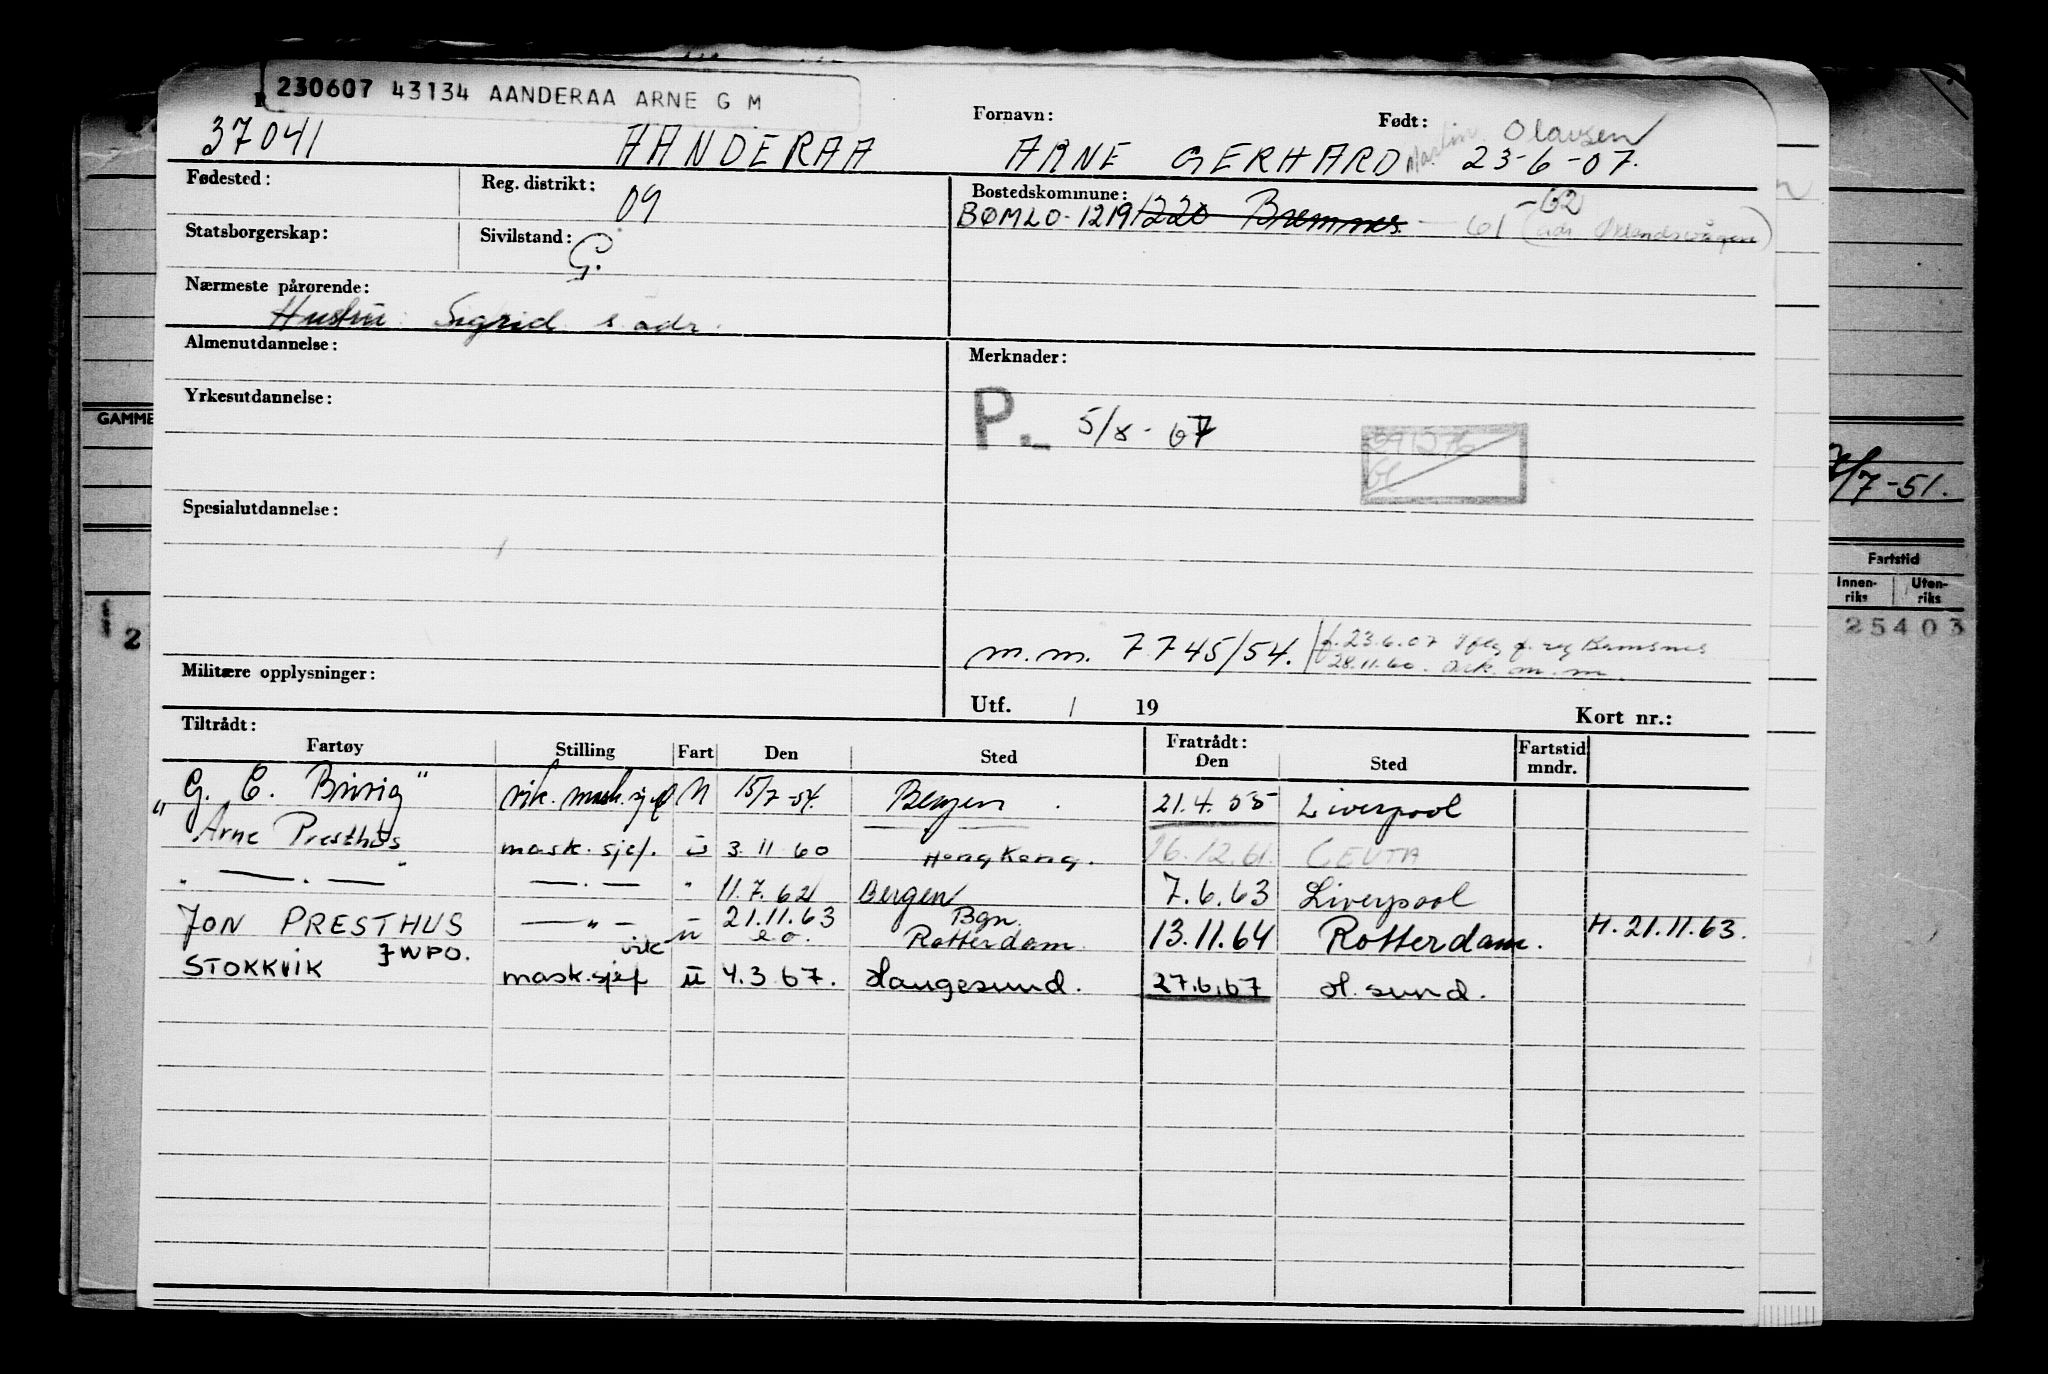 230607 43134 AANDERAA ARNE G M
37041 AANDERAA
Fornavn: ARNE GERHARD Martin Olavsen
Født: 23-6-07.
Fødested:
Reg. distrikt: 09
Bostedskommune: BØMLO-1219 1220 Bremnes -62
61
Statsborgerskap:
Sivilstand: G.
Nærmeste pårørende:
Hustru Sigrid s. adr.
Almenutdannelse:
Merknader:
Yrkesutdannelse:
P.- 5/8-67
Spesialutdannelse:
m.m. 7745/54. f. 23.6.07
28.11.60. m.m.
Militære opplysninger:
Utf. / 19
Kort nr.:
Tiltrådt:
Fratrådt:
Fartøy Stilling Fart Den Sted Den Sted Fartstid mndr.
"G. C. Brøvig" vik. mask.sjef U 15/7-54. Bergen. 21.4.55 Liverpool
Arne Presthus mask. sjef. u 3.11 60 Hong Kong. 16.12.61. CEUTA
" — . — " — . — " 11.7.62 Bergen 7.6.63 Liverpool
JON PRESTHUS — " — u 21.11.63 Bgn. 13.11.64 Rotterdam. H. 21.11.63.
e.o. Rotterdam
STOKKVIK JWPO. vik mask.sjef u 4.3.67. Haugesund. 27.6.67 H.sund.
GAMME
2
/7-51.
Fartstid
Innen-riks Uten-riks
25403